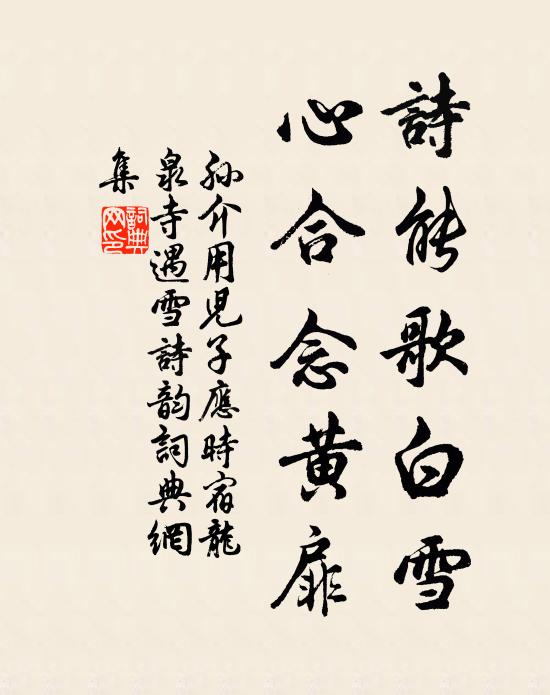 詩能歌白雪
心合念黃扉
孙介用児子應時宿龍
泉寺遇雪詩韵詞典網
集
詞典網印